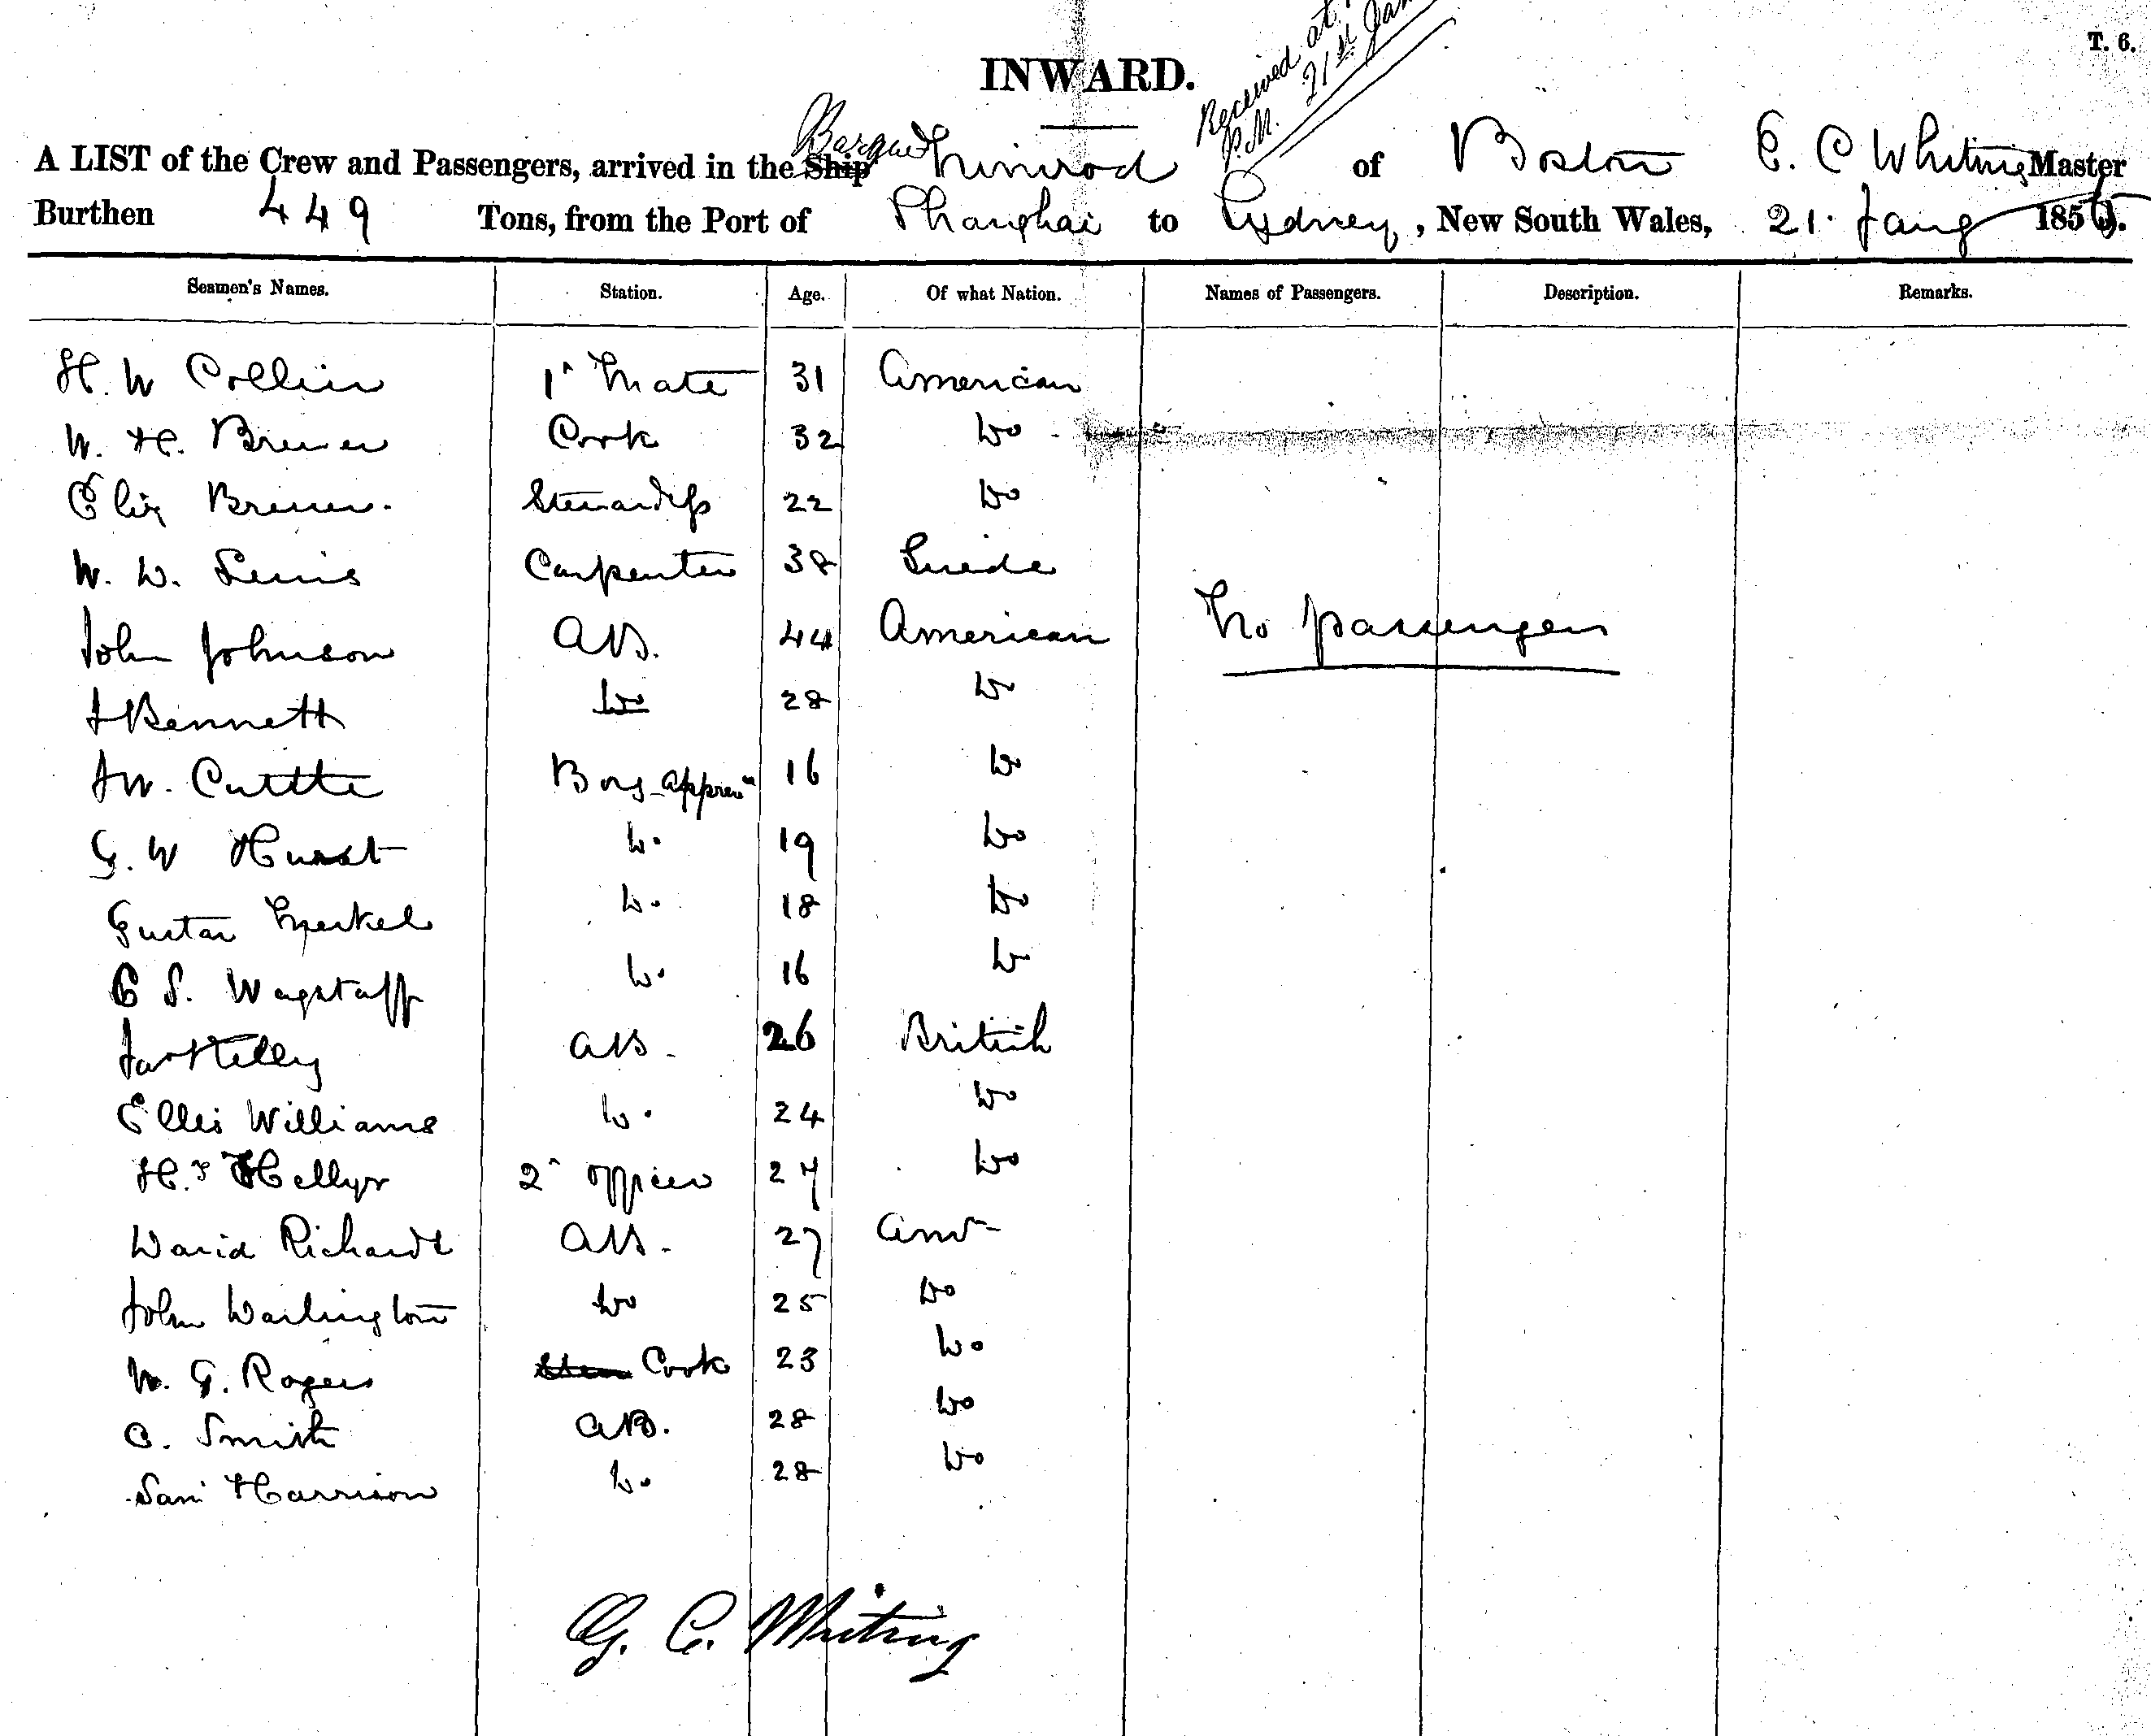 T. 6.
INWARD.
Received at
P.M. 21st Jan
A LIST of the Crew and Passengers, arrived in the Ship Barque Nimrod of Boston E. C Whiting Master
Burthen 449 Tons, from the Port of Shanghai to Sydney, New South Wales, 21. Jany 1856.
Seamen's Names. Station. Age. Of what Nation. Names of Passengers. Description. Remarks.
H. W Collier 1st Mate 31 American
W. H. Brewer Cook 32 Do
Eliz Brewer. Stewardess 22 Do
W. D. Lewis Carpenter 38 Swede
John Johnson AB. 44 American No passengers
J Bennett Do 28 Do
J W. Cuttle Boys appren 16 Do
G. W Hurst Do 19 Do
Gustav Merkel Do 18 Do
C S. Wagstaff Do 16 Do
Jas Kelly AB. 26 British
Ellis Williams Do 24 Do
Hy Hellyr 2d officer 27 Do
David Richards AB. 27 Amn
John Darlington Do 25 Do
W. G. Rogers Stew Cook 23 Do
C. Smith AB. 28 Do
Saml Harrison Do 28 Do
G. C. Whiting